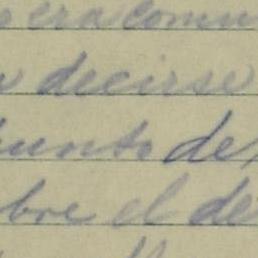 era comu
decirse
punto de
bre el de